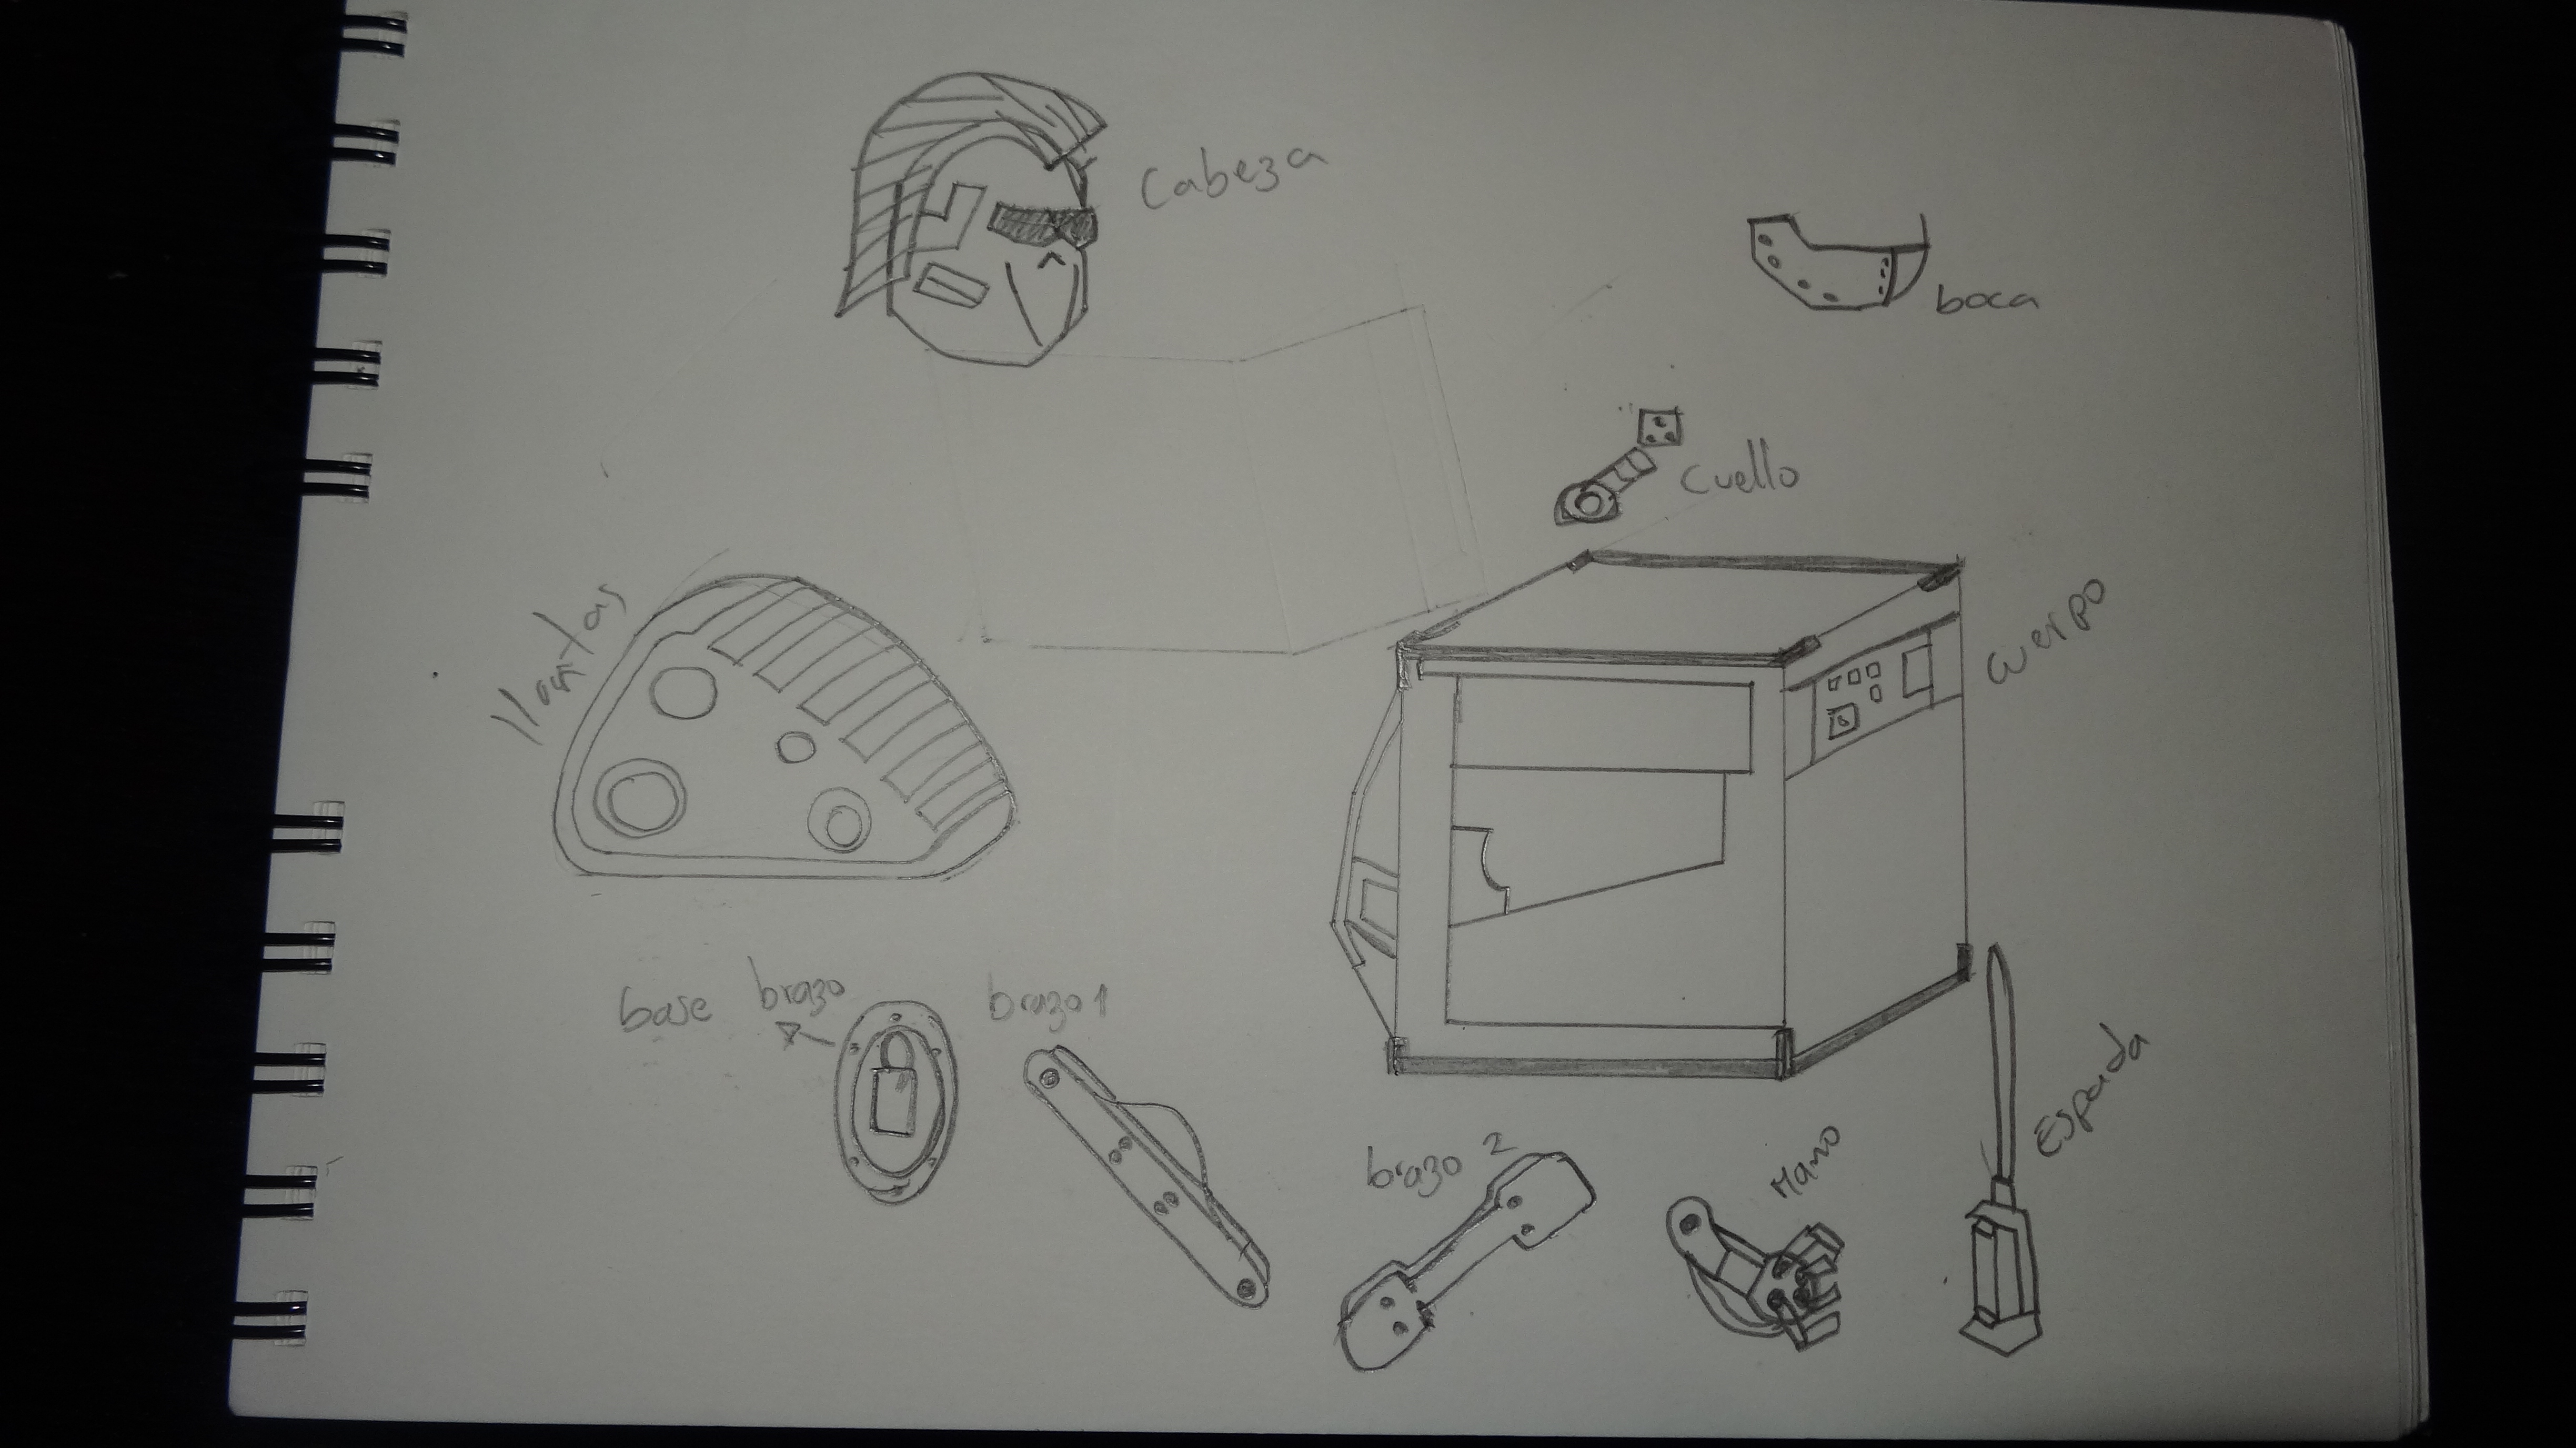 Cabeza
boca
Cuello
llantas
Cuerpo
base brazo
brazo 1
brazo 2
Mano
Espada